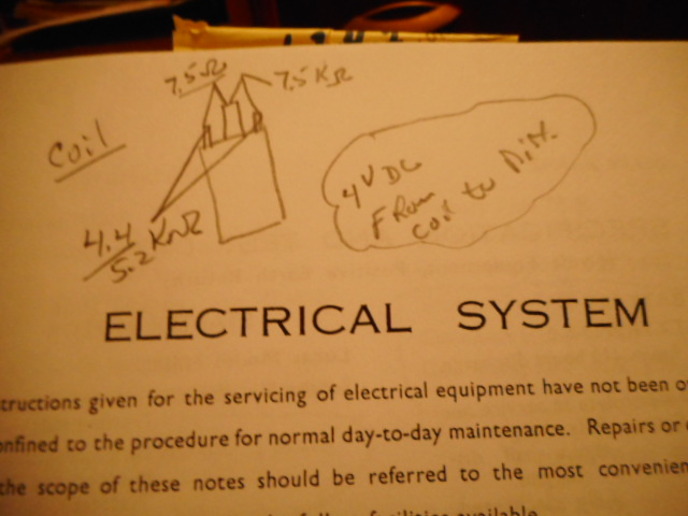 7.5Ω 7.5KΩ
Coil
4 VDC
FROM
COIL to Dist.
4.4
5.2 KΩ
ELECTRICAL SYSTEM
tructions given for the servicing of electrical equipment have not been o
onfined to the procedure for normal day-to-day maintenance. Repairs or
the scope of these notes should be referred to the most convenien
facilities available